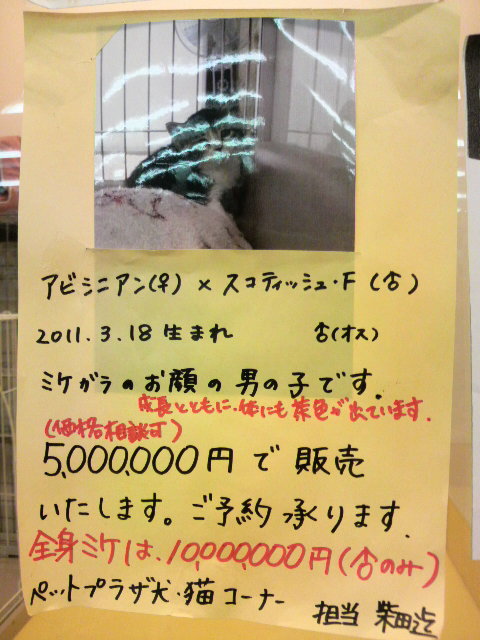 アビシニアン(♀) × スコティッシュ・F (♂)
2011.3.18 生まれ ♂(オス)
ミケガラのお顔の男の子です.
成長とともに・体にも茶色が出ています.
(価格相談可)
5,000,000円で販売
いたします。ご予約承ります.
全身ミケは、10,000,000円(♂のみ)
ペットプラザ犬・猫コーナー
担当 柴田迄